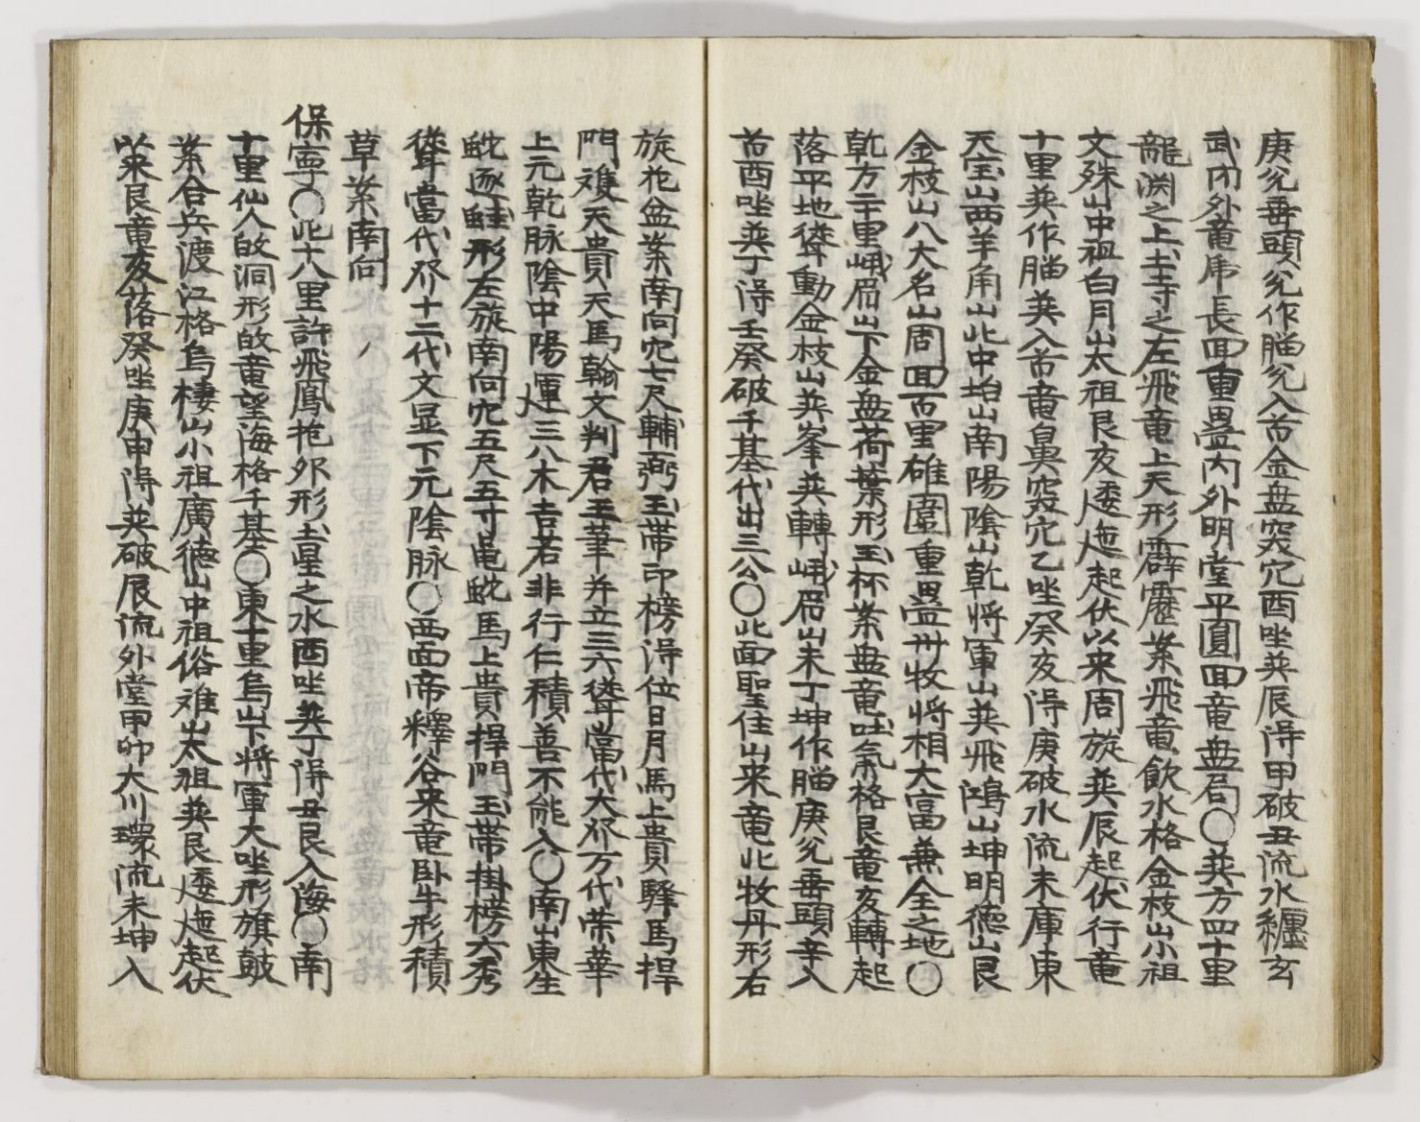 庚兊垂頭兊作腦兊入首金盘窔穴酉坐巽辰淂甲破丑流水纏玄
武內外竜席長回重疊內外明堂平圓回竜盘局〇巽方四十里
龍渊之上寺之左飛竜上天形霹靂案飛竜飮水格金枝山小祖
文殊山中祖白月山太祖艮亥逶迤起伏以来周旋巽辰起伏行竜
十里巽作腦巽入首竜鼻窔穴乙坐癸亥淂庚破水流未庫東
天宝山西羊角山北中坮山南陽陰山乾将軍山巽飛鴻山坤明德山艮
金枝山八大名山周回百里碓圍重疊卅牧将相大富兼全之地〇
乾方二十里峨眉山下金盘荷葉形玉杯案盘竜吐氣格艮竜亥轉起
落平地聳動金枝山巽峯巽轉峨眉山未丁坤作腦庚兊垂頭辛入
首酉坐巽丁淂壬癸破千基代出三公〇北面聖住山来竜北牧丹形右
旋花盆案南向穴七尺輔弼玉帶印榜淂位日月馬上貴驛馬捍
門雙天貴天馬翰文判君玉筆并立三六聳當代大尒万代荣華
上元乾脉陰中陽運三八木吉若非行仁積善不能入〇南山東生
蛇逐蛙形左旋南向穴五尺五寸黽蛇馬上貴捍門玉帶掛榜六秀
聳當代尒十二代文显下元陰脉〇西面帝釋谷来竜臥牛形積
草案南向
保寧〇北十八里許飛鳳抱卵形土星之水酉坐巽丁淂丑艮入海〇南
十里仙人故洞形故竜望海格千基〇東十里烏山下将軍大坐形旗鼓
案合兵渡江格烏棲山小祖廣德山中祖俗难山太祖巽艮逶迤起伏
以来艮竜亥落癸坐庚申淂巽破辰流外堂甲卯大川環流未坤入